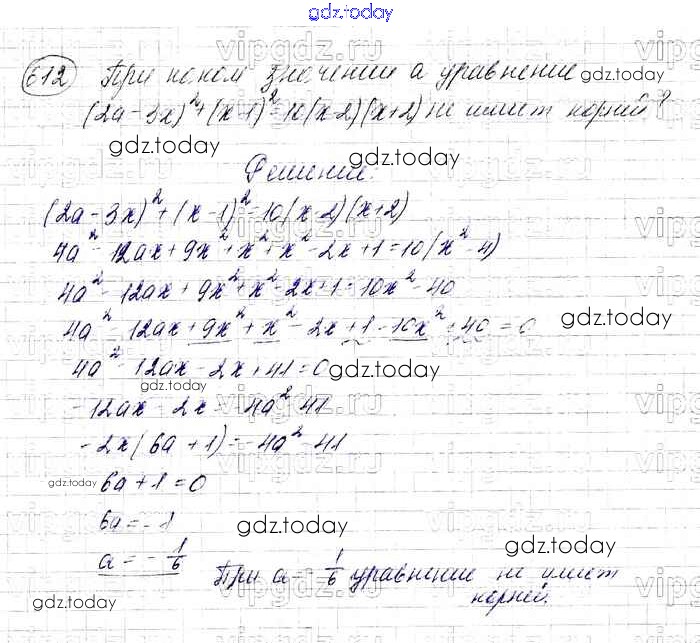 gdz.today
612 При каком значении a уравнение gdz.today
(2a-3x)²+(x-1)²=10(x-2)(x+2) не имеет корней?
gdz.today gdz.today
Решение:
(2a-3x)²+(x-1)²=10(x-2)(x+2)
4a²-12ax+9x²+x²+x²-2x+1=10(x²-4)
4a²-12ax+9x²+x²-2x+1=10x²-40
4a²-12ax+9x²+x²-2x+1-10x²+40=0 gdz.today
4a²-12ax-2x+41=0 gdz.today
gdz.today
-12ax-2x=-4a²-41
-2x(6a+1)=-4a²-41
gdz.today 6a+1=0
6a=-1 gdz.today
a=-1/6 gdz.today
При a=-1/6 уравнение не имеет
gdz.today корней.
vipgdz.ru